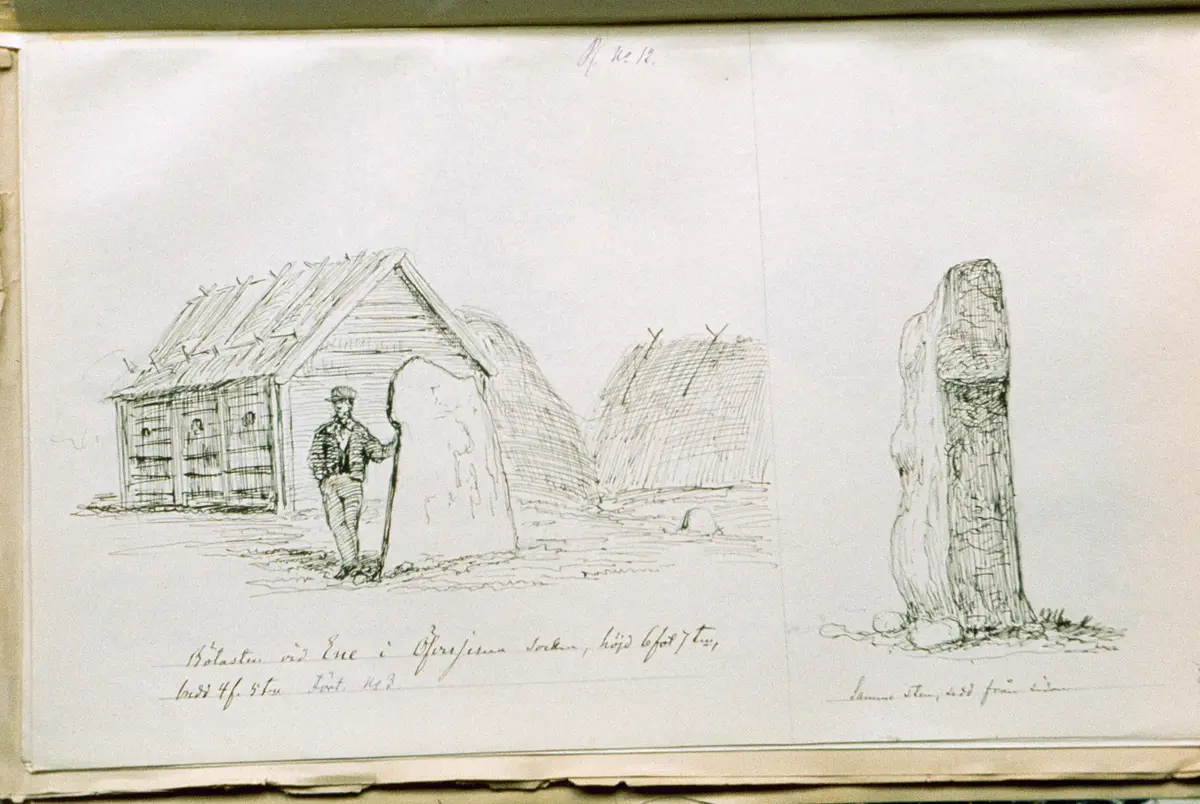 Pl. No 12.
Bötasten vid Ene i socken, höjd 6 fot 7 tm,
bredd 4 f. 5 tm Fört. No 3
Samma sten, sedd från sidan